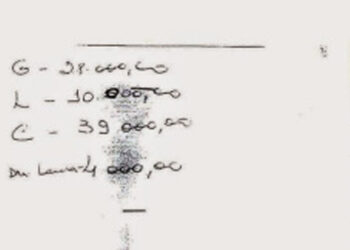 G - 28.000,00
L - 10.000,00
C - 39 000,00
4 000,00